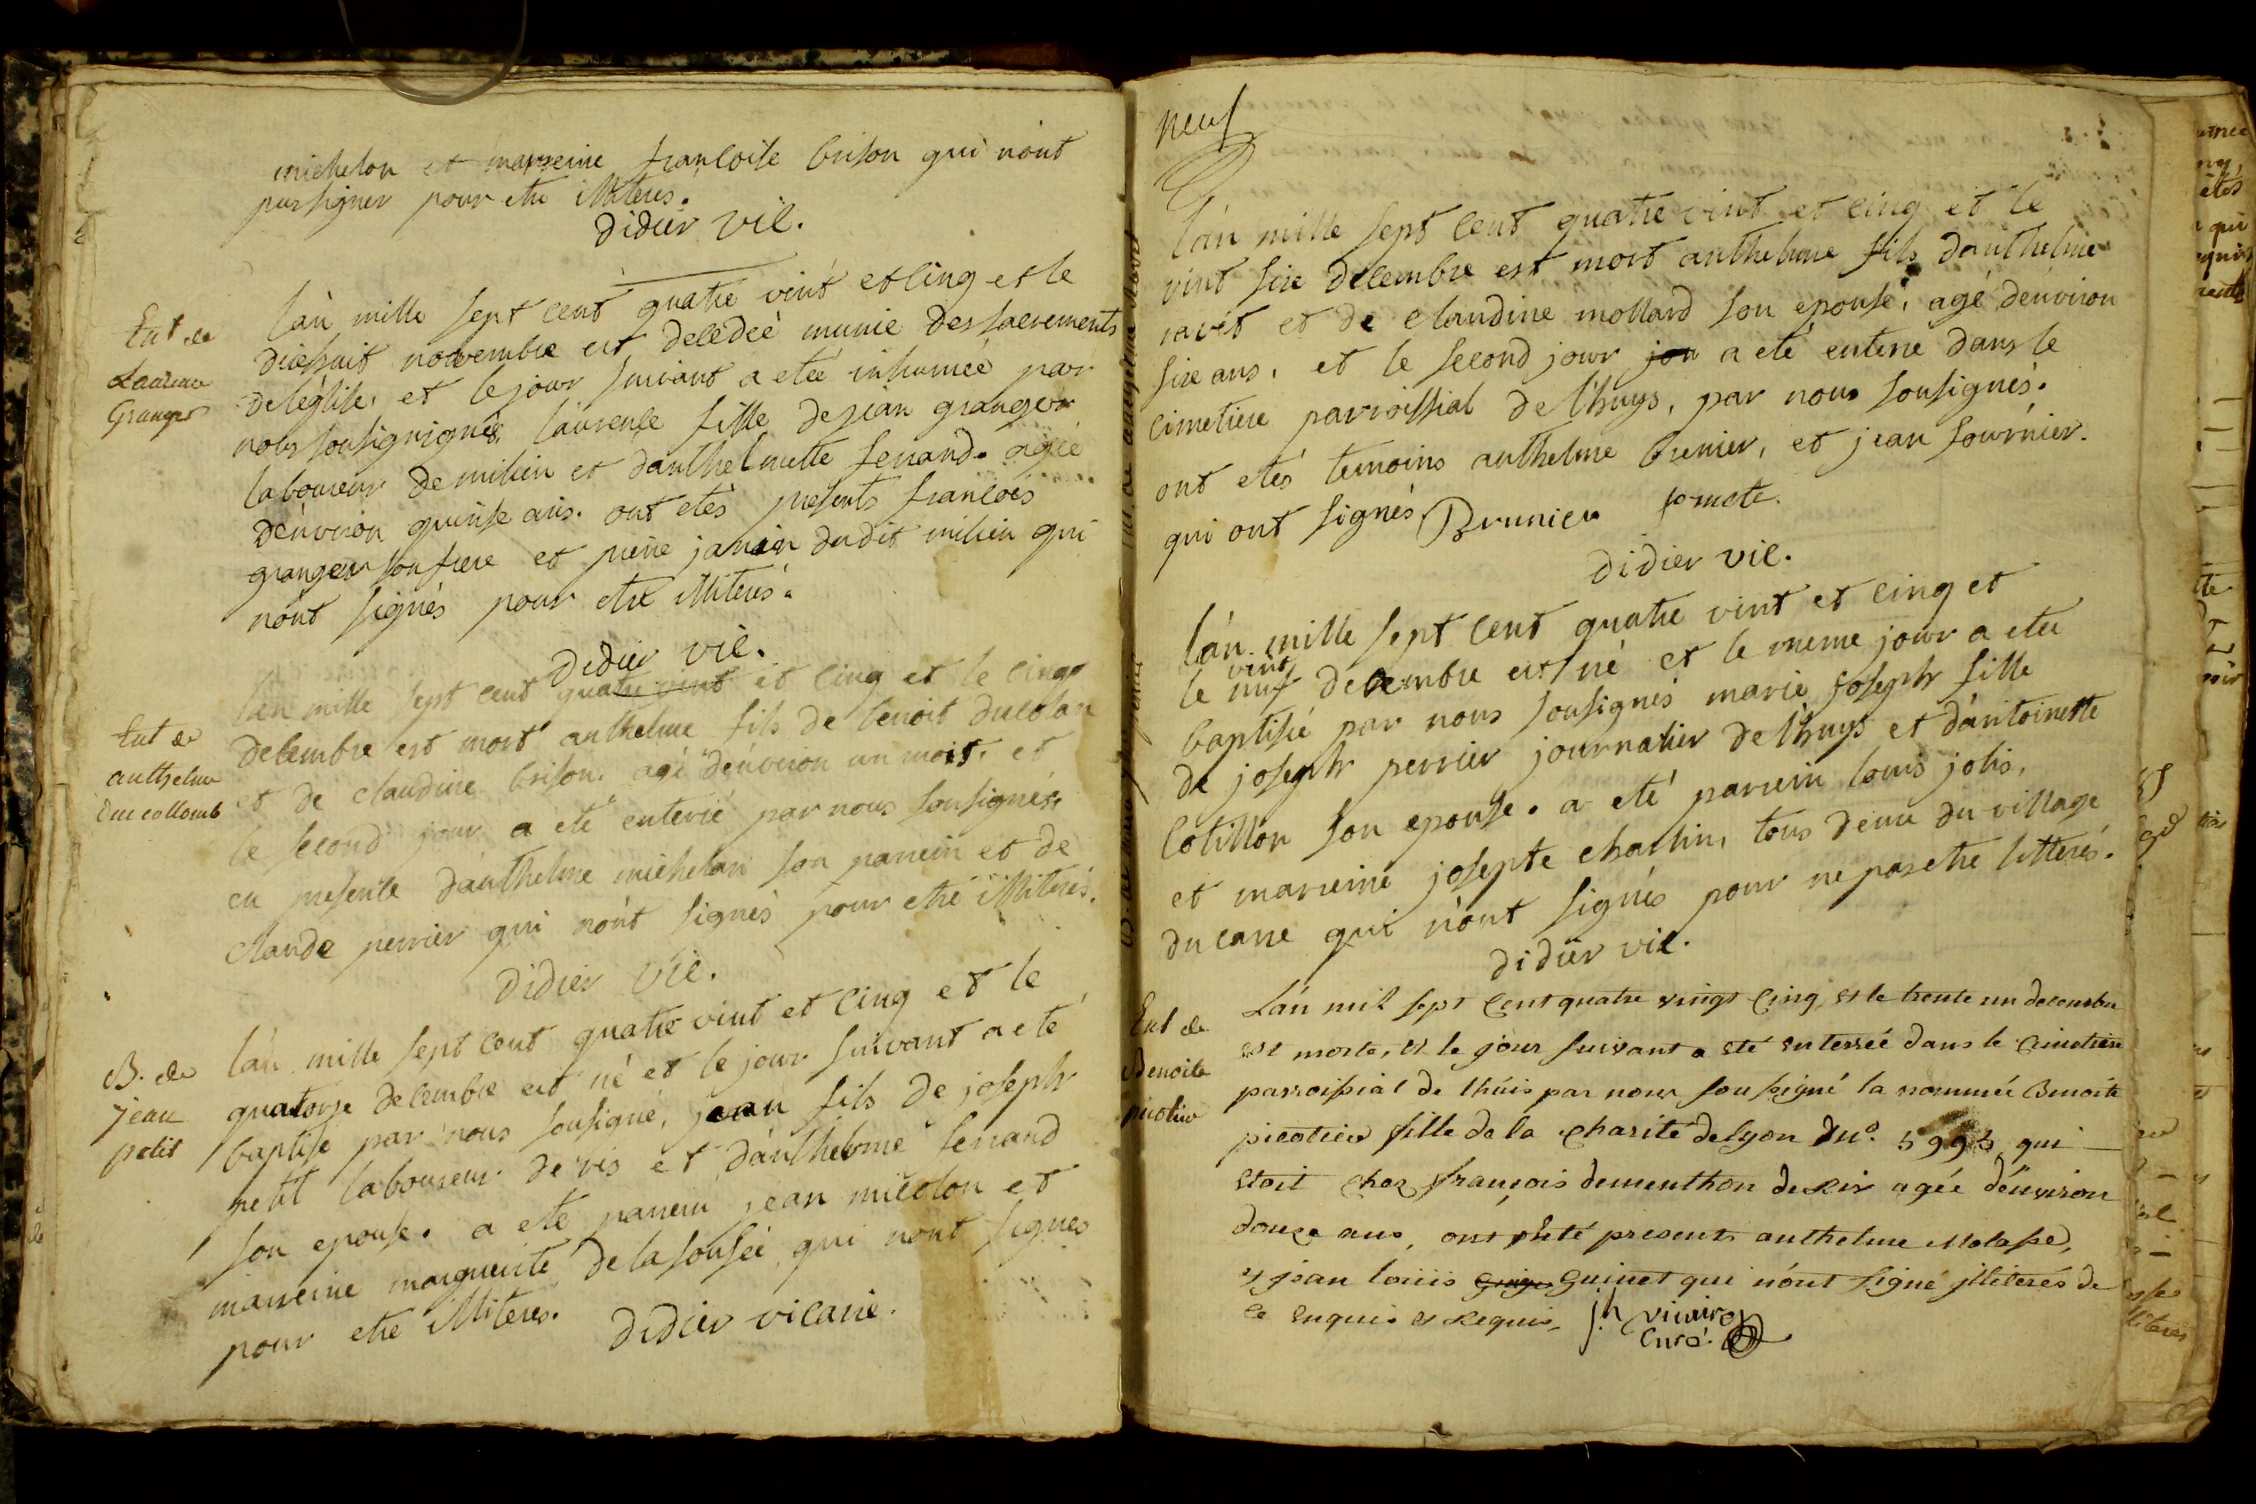 michelon et marreine francoise brison qui nont
pu signer pour etre illiterés.
Didier vic.
Ent de
Laurence
Granger
l'an mille sept cent quatre vint et cinq et le
dixhuit novembre est decedeé munie des sacrements
de leglise, et le jour suivant a eteé inhumeé par
nous sousignignés, laurence fille de jean granger
laboureur de milieu et danthelmette ferrand. ageé
denviron quinse ans. ont etés presents francois
granger son frere et pierre janin dudit milieu qui
nont signés pour etre illiterés.
Didier vic.
Ent de
anthelme
du collomb
l'an mille sept cent quatre vint et cinq et le cinq
decembre est mort anthelme fils de benoit ducolan
et de claudine brison. agé denviron un mois. et
le second jour a eté enterré par nous sousignés.
en presence danthelme michelon son parrein et de
claude perrier qui nont signés pour etre illiterés.
Didier vic.
B. de
jean
petit
l'an mille sept cent quatre vint et cinq et le
quatorze decembre est né et le jour suivant a eté
baptise par nous sousigné, jean fils de joseph
petit laboureur de vis et danthelme ferrand
son epouse. a ete parrein jean micolon et
marreine marguerite de la fouseé qui nont signes
pour etre illiteres. Didier vicaire.
neuf
l'an mille sept cent quatre vint et cinq et le
vint sixe decembre est mort anthelme fils danthelme
ravét et de claudine mollard son epouse, agé denviron
sixe ans, et le second jour jou a eté enterré dans le
cimetiere parroissial de lhuys, par nous sousignés.
ont etés temoins anthelme brunier, et jean fournier.
qui ont signés Brunier
Didier vic.
l'an mille sept cent quatre vint et cinq et
le vint neuf decembre est né et le meme jour a eteé
baptiseé par nous sousignés marie joseph fille
de joseph perrier journalier de lhuys et dantoinette
cotillon son epouse. a eté parrein louis jolis,
et marreine josepte charlin, tous deux du village
ducarre qui nont signés pour ne pas etre litterés.
Didier vic.
Ent de
Benoite
picotier
L'an mil sept cent quatre vingt cinq, et le trente un decembre
est morte, et le jour suivant a eté enterréé dans le cimetiere
parroissial de lhuis par nous soussigné la nommée Benoite
picotier fille de la charité de lyon du n°. 5995 qui
etoit chez françois dementhon de Rix agée d'environ
douze ans, ont eté presents anthelme Molasse,
et jean louis guige guinet qui n'ont signé illiterés de
ce enquis et Requis,
curé.